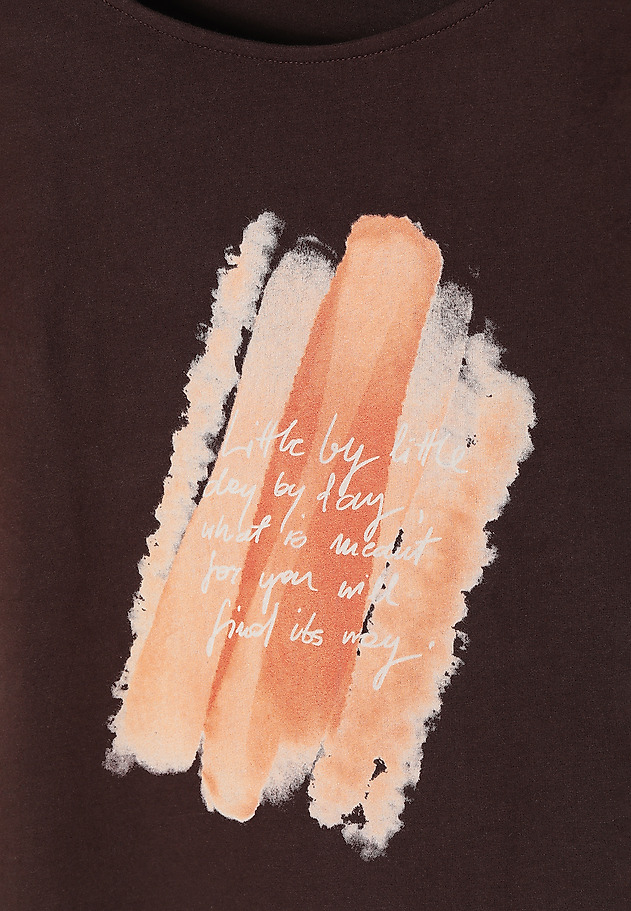 Little by little
day by day,
what is meant
for you will
find its way.